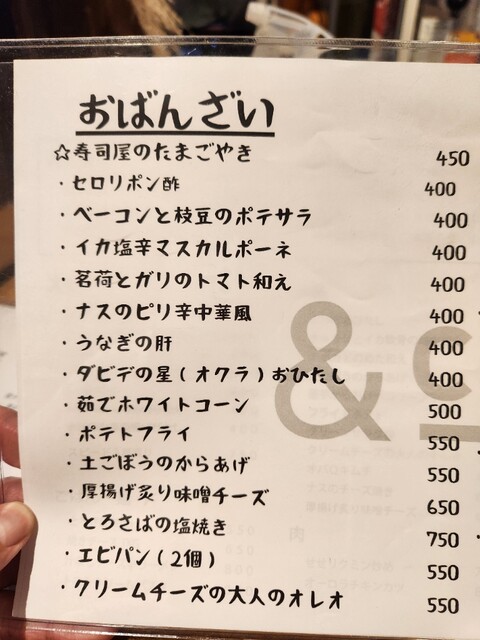 おばんざい
☆寿司屋のたまごやき 450
・セロリポン酢 400
・ベーコンと枝豆のポテサラ 400
・イカ塩辛マスカルポーネ 400
・茗荷とガリのトマト和え 400
・ナスのピリ辛中華風 400
・うなぎの肝 400
・ダビデの星(オクラ)おひたし 400
・茹でホワイトコーン 500
・ポテトフライ 550
・土ごぼうのからあげ 550
・厚揚げ炙り味噌チーズ 650
・とろさばの塩焼き 750
・エビパン(2個) 550
・クリームチーズの大人のオレオ 550
& c